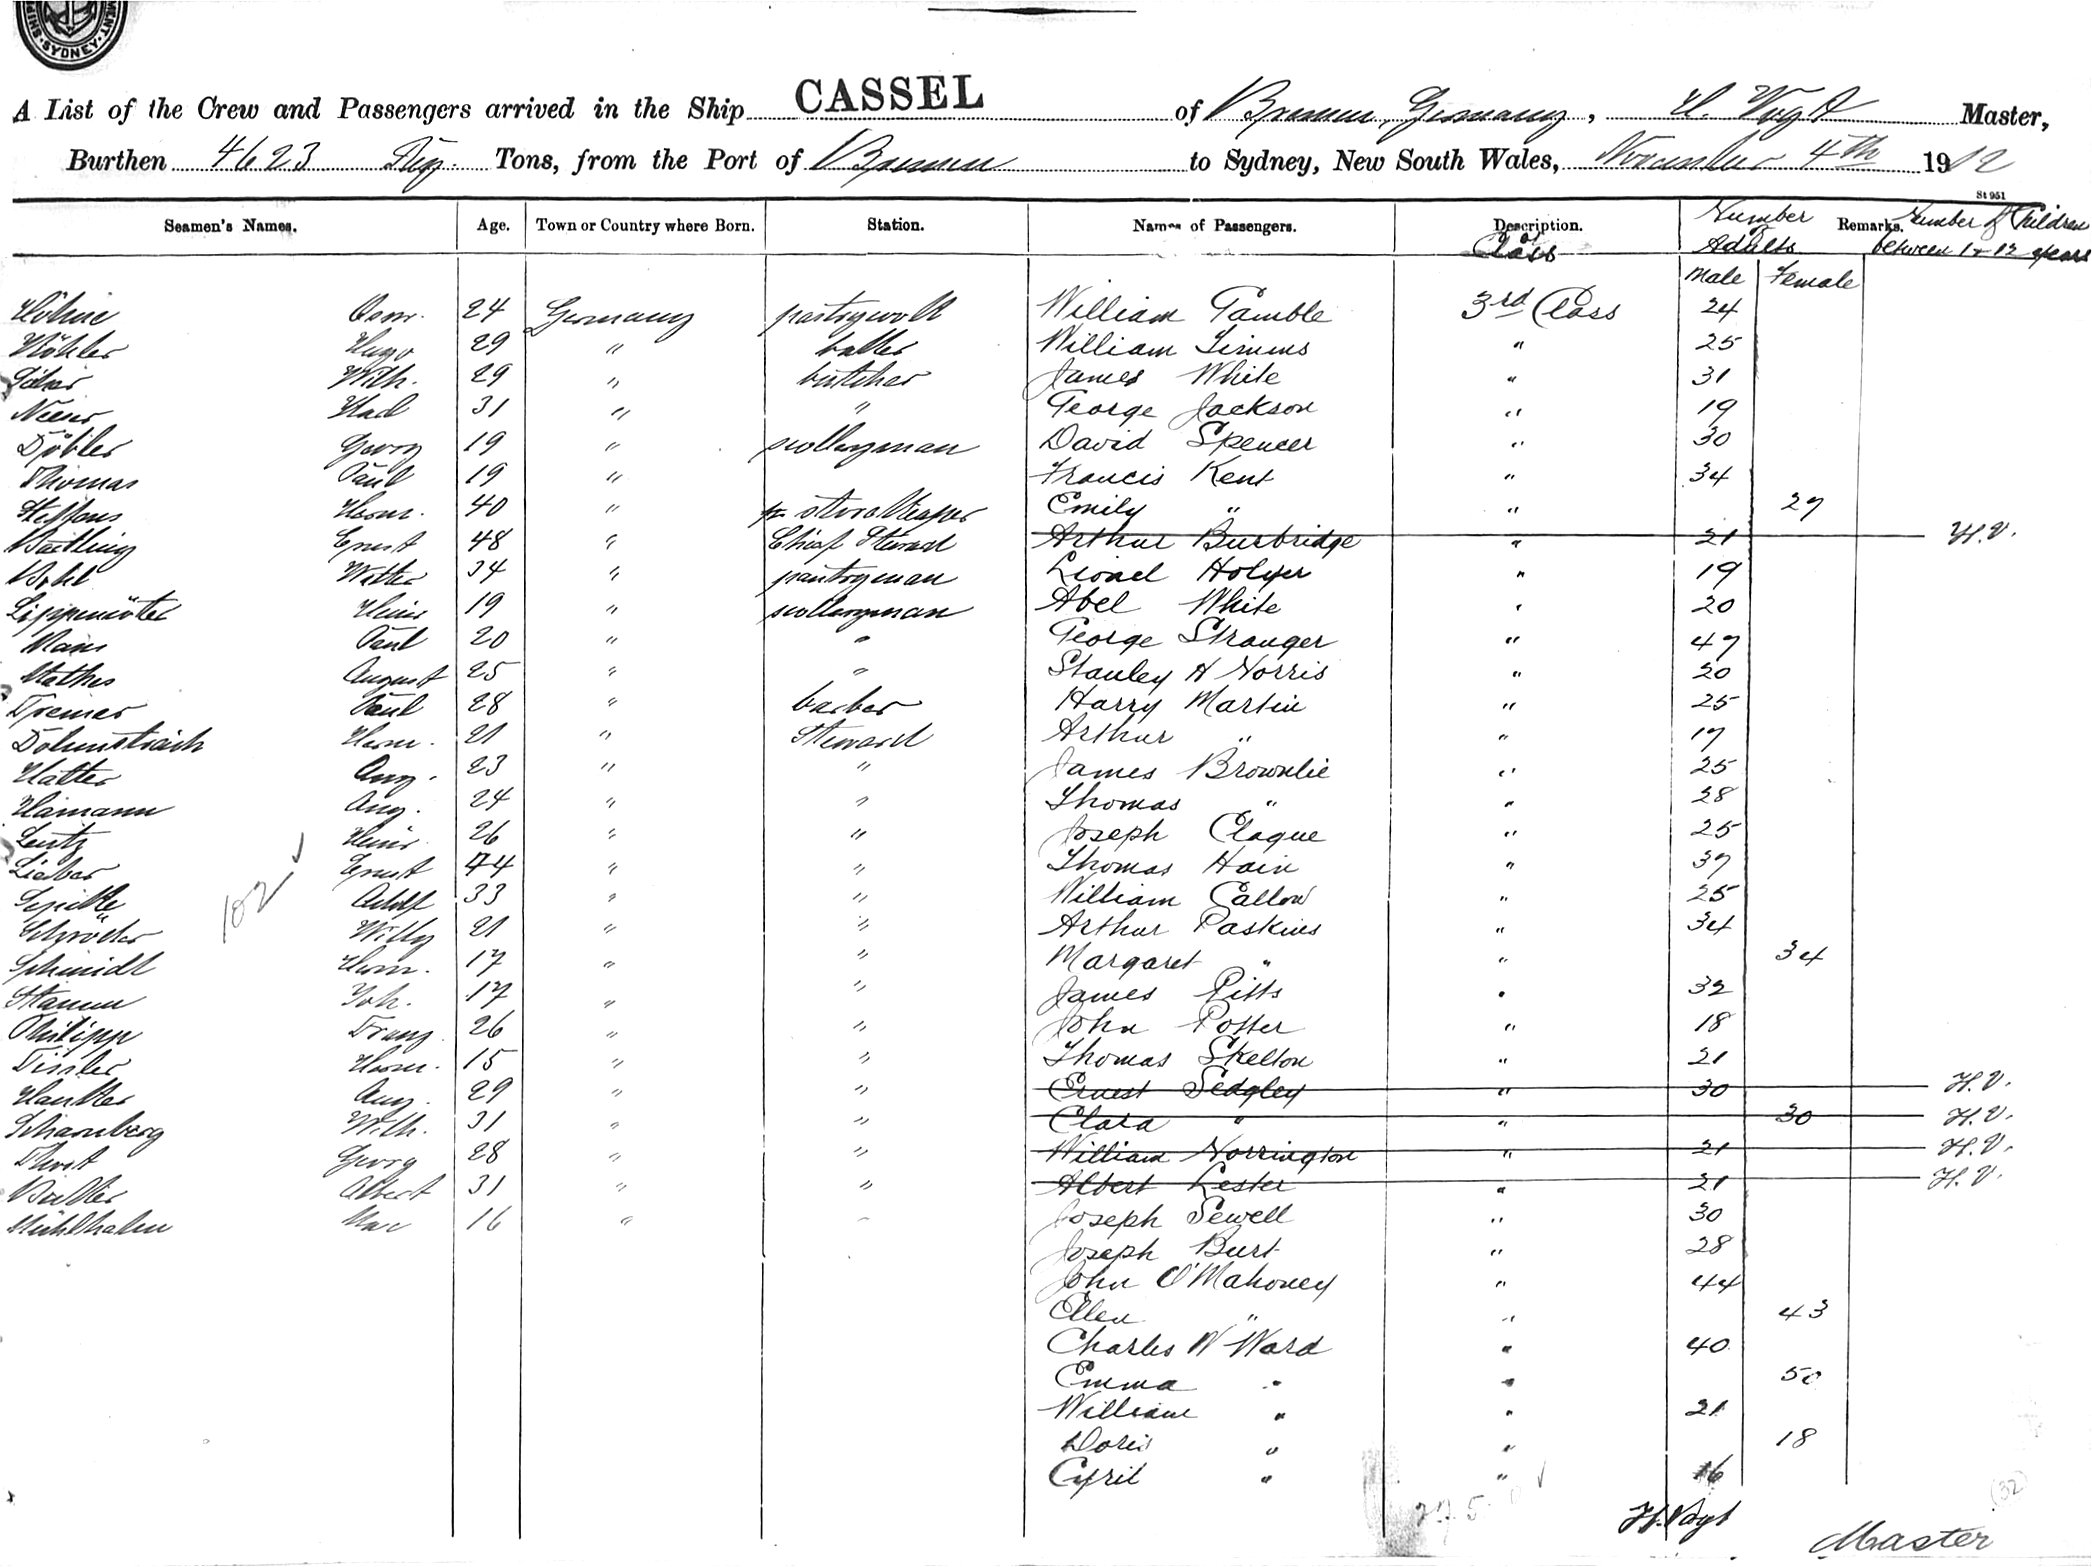 SYDNEY
A List of the Crew and Passengers arrived in the Ship CASSEL of Bremen, Germany, H. Vogt Master,
Burthen 4623 Tons, from the Port of Bremen to Sydney, New South Wales, November 4th 1912
St 951
Seamen's Names. Age. Town or Country where Born. Station. Names of Passengers. Description. Class Number of Adults Remarks. Number of Children between 1 & 12 years
Male Female
24 Germany William Gamble 3rd Class 24
Köhler Hugo 29 " William Simms " 25
Wilh. 29 " butcher James White " 31
31 " " George Jackson " 19
Georg 19 " sculleryman David Spencer " 30
Thomas Paul 19 " Francis Kent " 34
Steffens Herm. 40 " storekeeper Emily " " 27
Ernst 48 " Chief Steward Arthur Burbridge " 21 H.V.
34 " pantryman Lionel Holyer " 19
19 " sculleryman Abel White " 20
Paul 20 " " George Stranger " 47
Mathes August 25 " " Stanley H Norris " 20
Paul 28 " barber Harry Martin " 25
Herm. 21 " Steward Arthur " " 17
Aug. 23 " " James Brownlie " 25
Hamann Aug. 24 " " Thomas " " 28
Lentz Heinr. 26 " " Joseph Clague " 25
Lieber Ernst 44 " " Thomas Hain " 37
Adolf 33 " " William Callow " 25
Schröder Willy 21 " " Arthur Paskins " 34
Schmidt Herm. 17 " " Margaret " " 34
Stamm Joh. 17 " " James Pitts " 32
Philipp Franz 26 " " John Potter " 18
Tissler Herm. 15 " " Thomas Skelton " 21
Aug. 29 " " Ernest Sedgley " 30 H.V.
Scharnberg Wilh. 31 " " Clara " " 30 H.V.
Georg 28 " " William Norrington " 21 H.V.
Albert 31 " " Albert Lester " 21 H.V.
16 " Joseph Sewell " 30
Joseph Burt " 28
John O'Mahoney " 44
Ellen " " 43
Charles W Ward " 40
Emma " " 50
William " " 21
Doris " " 18
Cyril " " 16
102
275
(32)
H. Vogt
Master